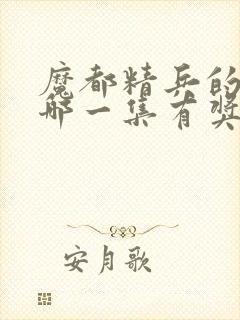 魔都精兵的
哪一集有奖
安月歌